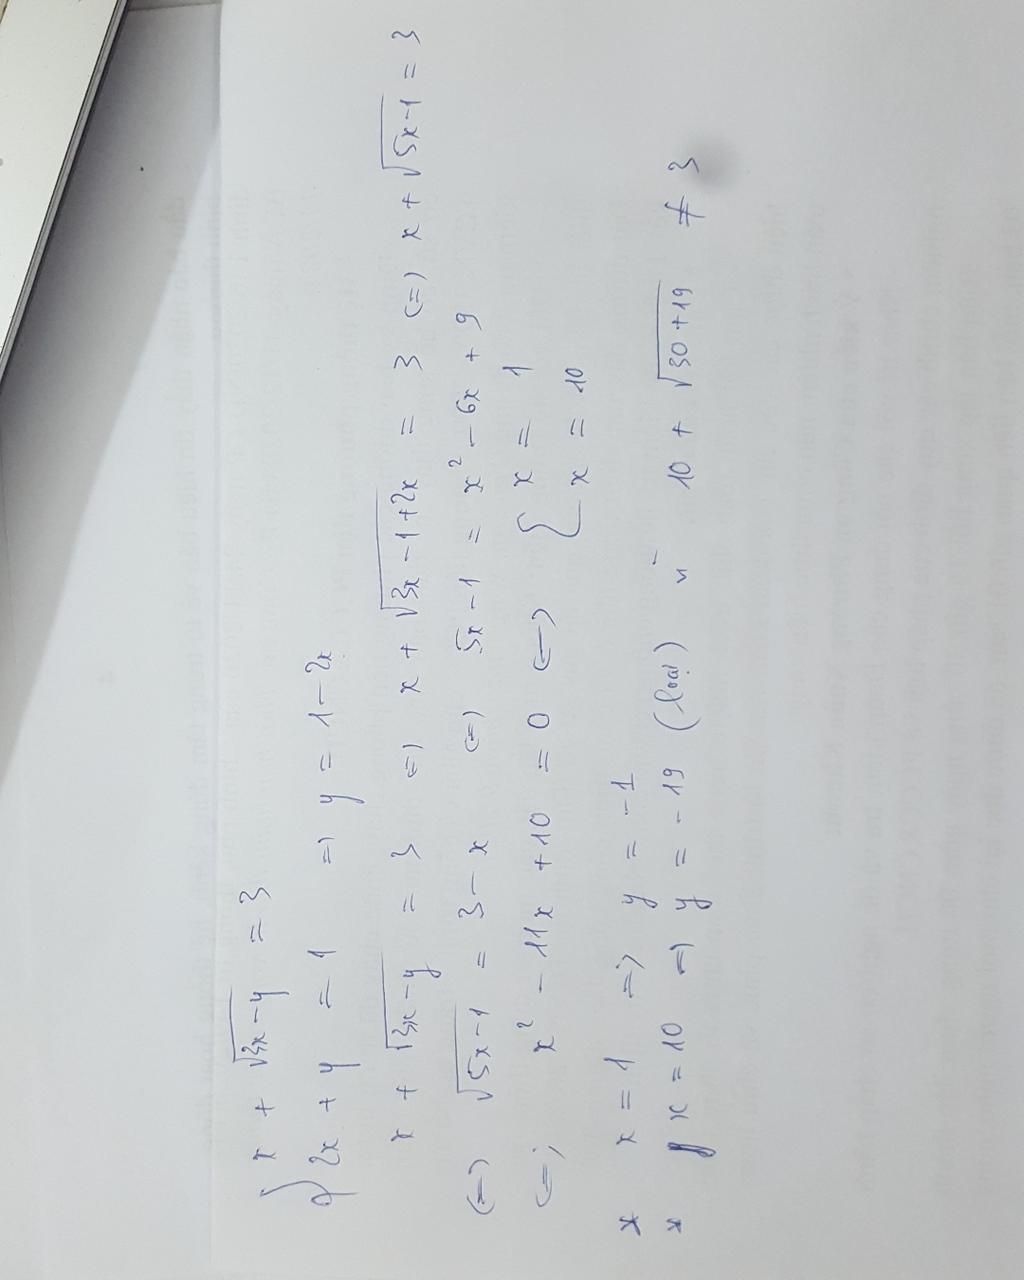 x + √3x-y = 3
2x + y = 1 => y = 1-2x
x + √3x-y = 3 <=> x + √3x-1+2x = 3 <=> x + √5x-1 = 3
<=> √5x-1 = 3-x <=> 5x-1 = x² - 6x + 9
<=> x² - 11x + 10 = 0 <=> { x = 1
x = 10
* x = 1 => y = -1
* x = 10 => y = -19 (loại) vì 10 + √30+19 ≠ 3